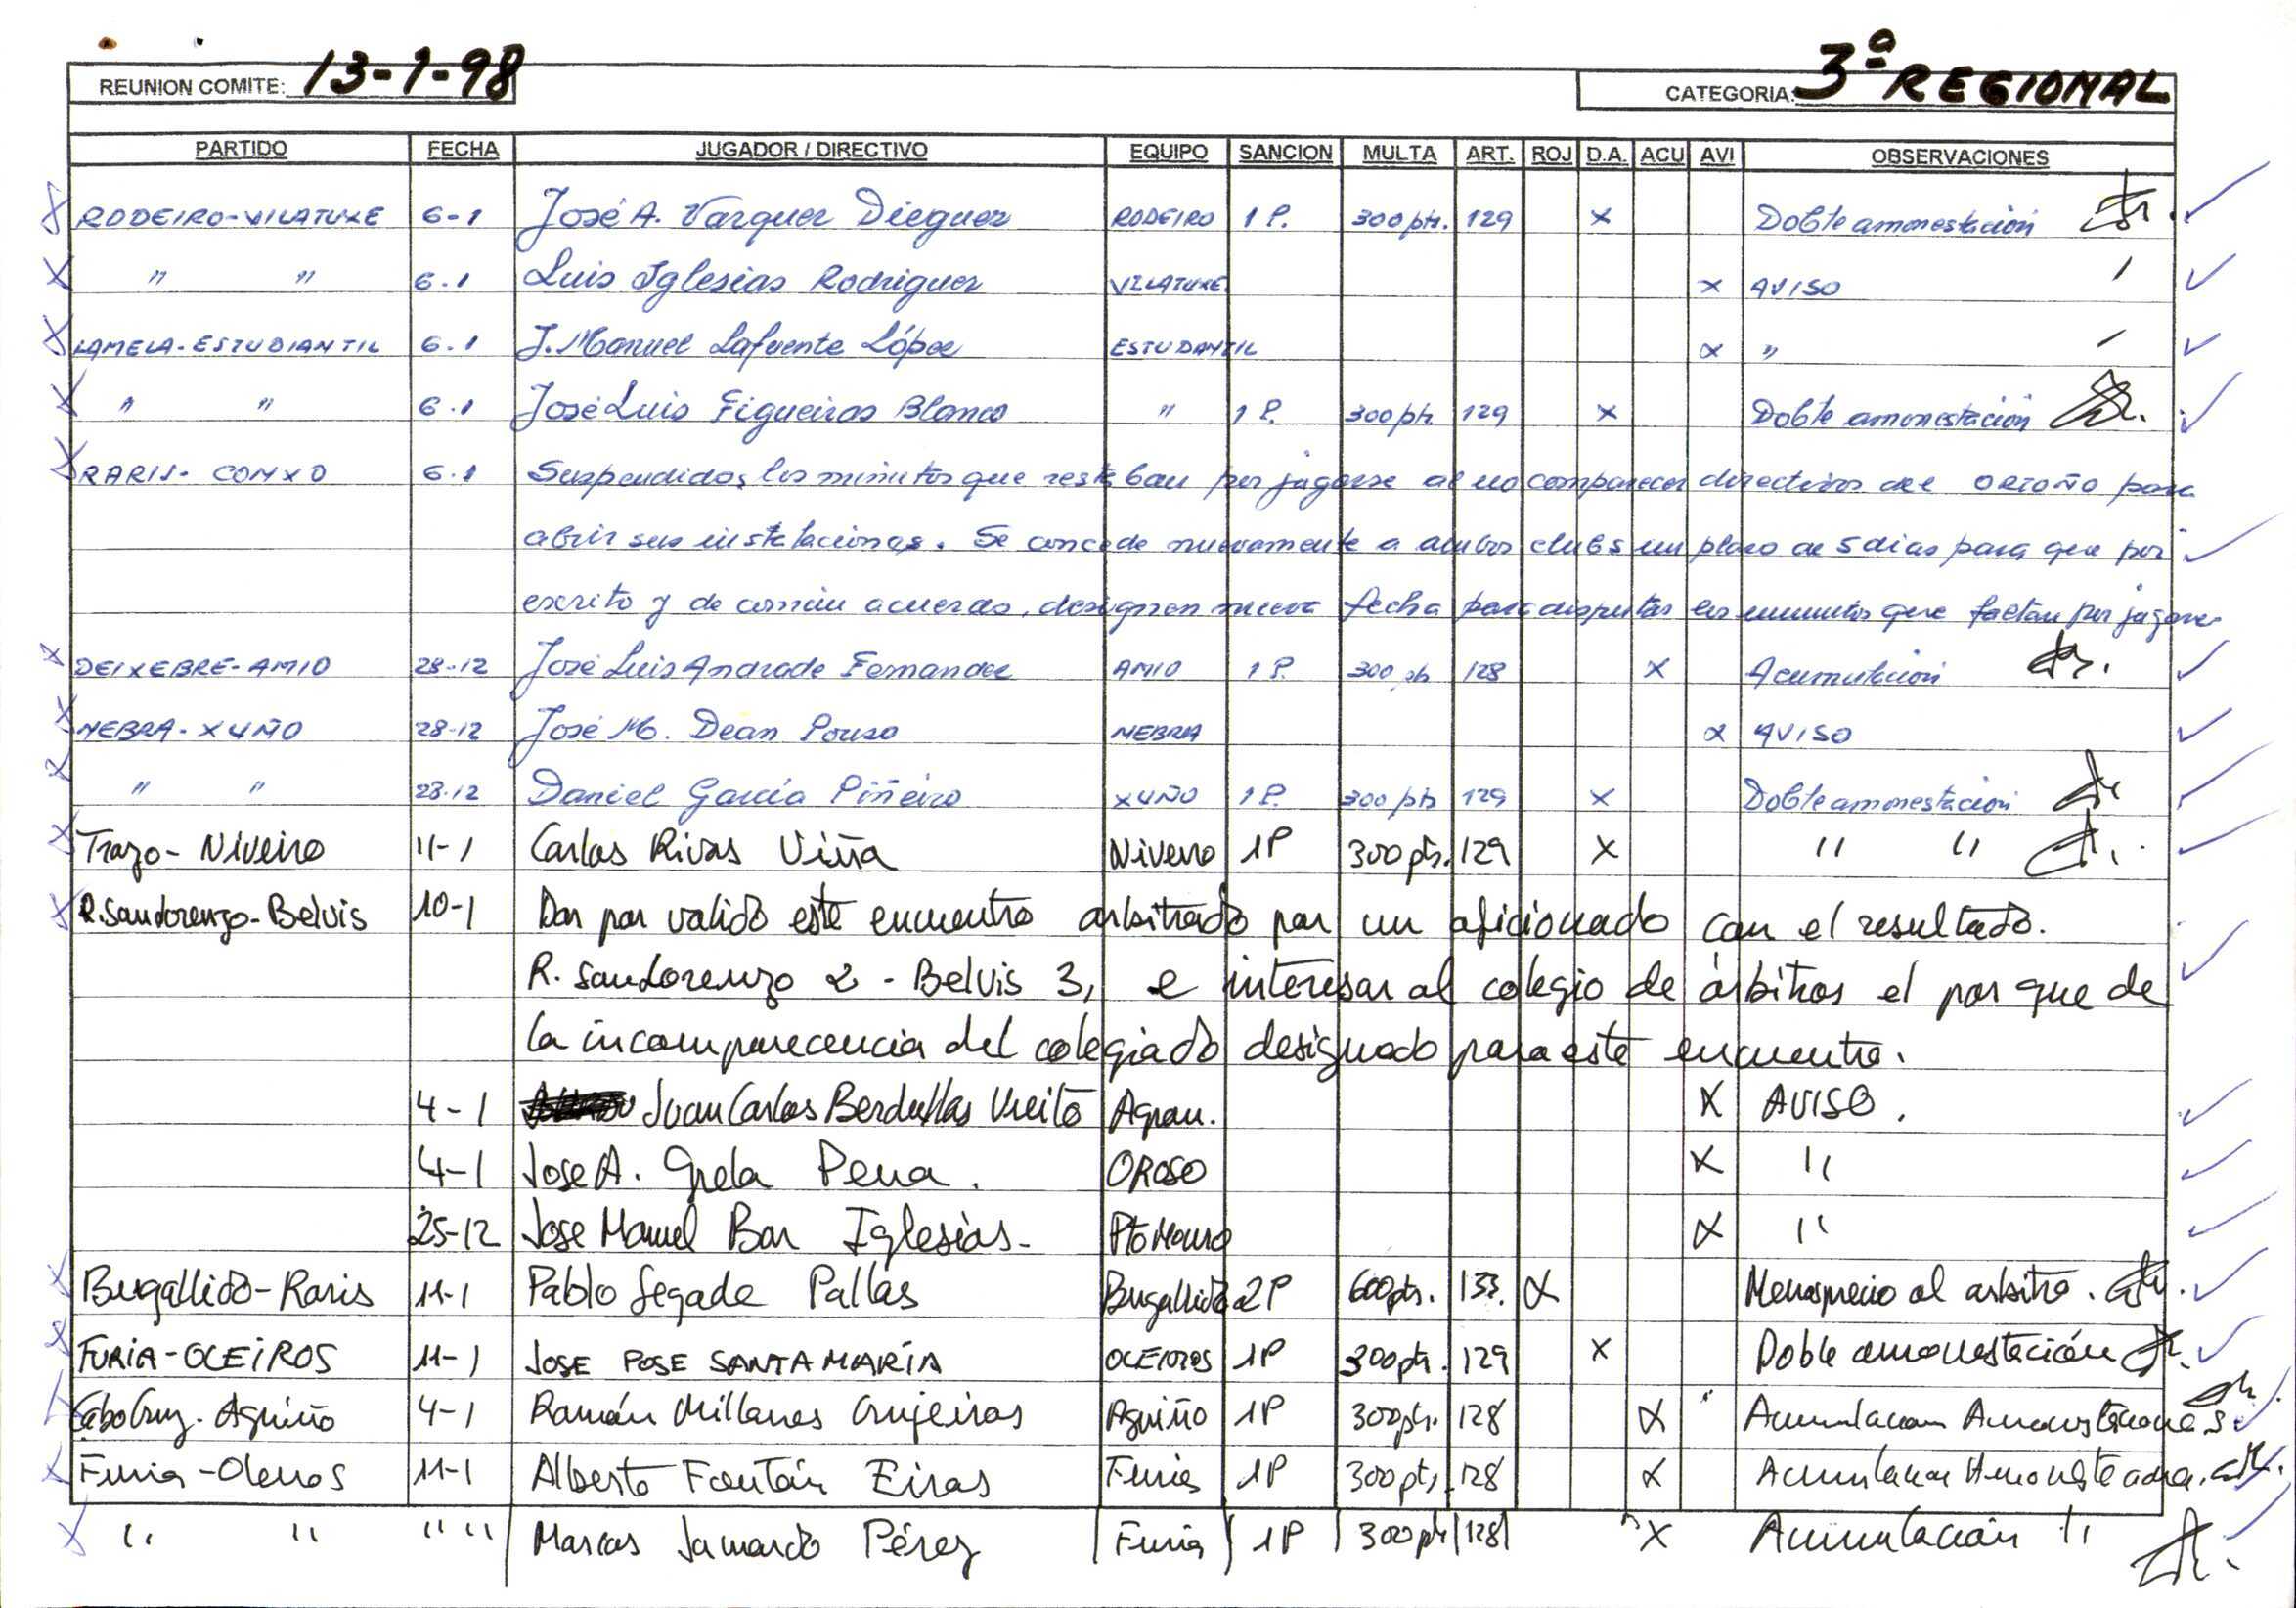 REUNION COMITE: 13-1-98 CATEGORIA: 3ª REGIONAL
PARTIDO FECHA JUGADOR / DIRECTIVO EQUIPO SANCION MULTA ART. ROJ D.A. ACU AVI OBSERVACIONES
RODEIRO-VILATUXE 6-1 José A. Vazquez Dieguez RODEIRO 1 P. 300 pts. 129 x Doble amonestación
" " 6.1 Luis Iglesias Rodriguez VILATUXE x AVISO
LAMELA-ESTUDIANTIL 6.1 J. Manuel Lafuente López ESTUDANTIL x "
" " 6.1 José Luis Figueiras Blanco " 1 P. 300 pts. 129 x Doble amonestación
RARIS-CONXO 6.1 Suspendidos los minutos que restaban por jugarse al no comparecer directivos del ORTOÑO para
abrir sus instalaciones. Se concede nuevamente a ambos clubs un plazo de 5 dias para que por
escrito y de común acuerdo, designen nueva fecha para disputar los minutos que faltan por jugarse
DEIXEBRE-AMIO 28-12 José Luis Andrade Fernandez AMIO 1 P. 300 pts 128 x Acumulación
NEBRA-XUÑO 28-12 José M. Dean Pouso NEBRA x AVISO
" " 28.12 Daniel García Piñeiro XUÑO 1 P. 300 pts 129 x Doble amonestación
Trazo-Niveiro 11-1 Carlos Rivas Viña Niveiro 1P 300 pts. 129 x " "
R.SanLorenzo-Belvis 10-1 Dar por valido este encuentro arbitrado por un aficionado con el resultado.
R. SanLorenzo 2 - Belvis 3, e interesar al colegio de árbitros el por que de
la incomparecencia del colegiado designado para este encuentro.
4-1 Juan Carlos Berdullas Vieito Agron. X AVISO.
4-1 Jose A. Grela Pena. OROSO X "
25-12 Jose Manuel Bar Iglesias- Pto Mouro X "
Bugallido-Raris 11-1 Pablo Segade Pallas Bugallido 2P 600pts. 133. X Menosprecio al arbitro.
FURIA-OLEIROS 11-1 JOSE POSE SANTAMARÍA OLEIROS 1P 300pts. 129 x Doble amonestación
CaboCruz. Aguiño 4-1 Ramón Millanes Crujeiras Aguiño 1P 300pts. 128 X Acumulacion Amonestaciones
Furia-Oleiros 11-1 Alberto Fontán Eiras Furia 1P 300pts. 128 X Acumulacion Amonestaciones.
" " " " Marcos Jamardo Pérez Furia 1P 300pts 128 X Acumulación "